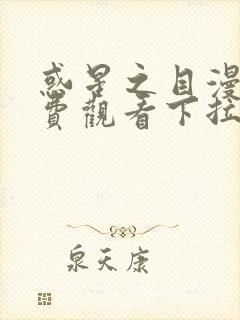 惑星之目漫
費觀看下拉
泉天康